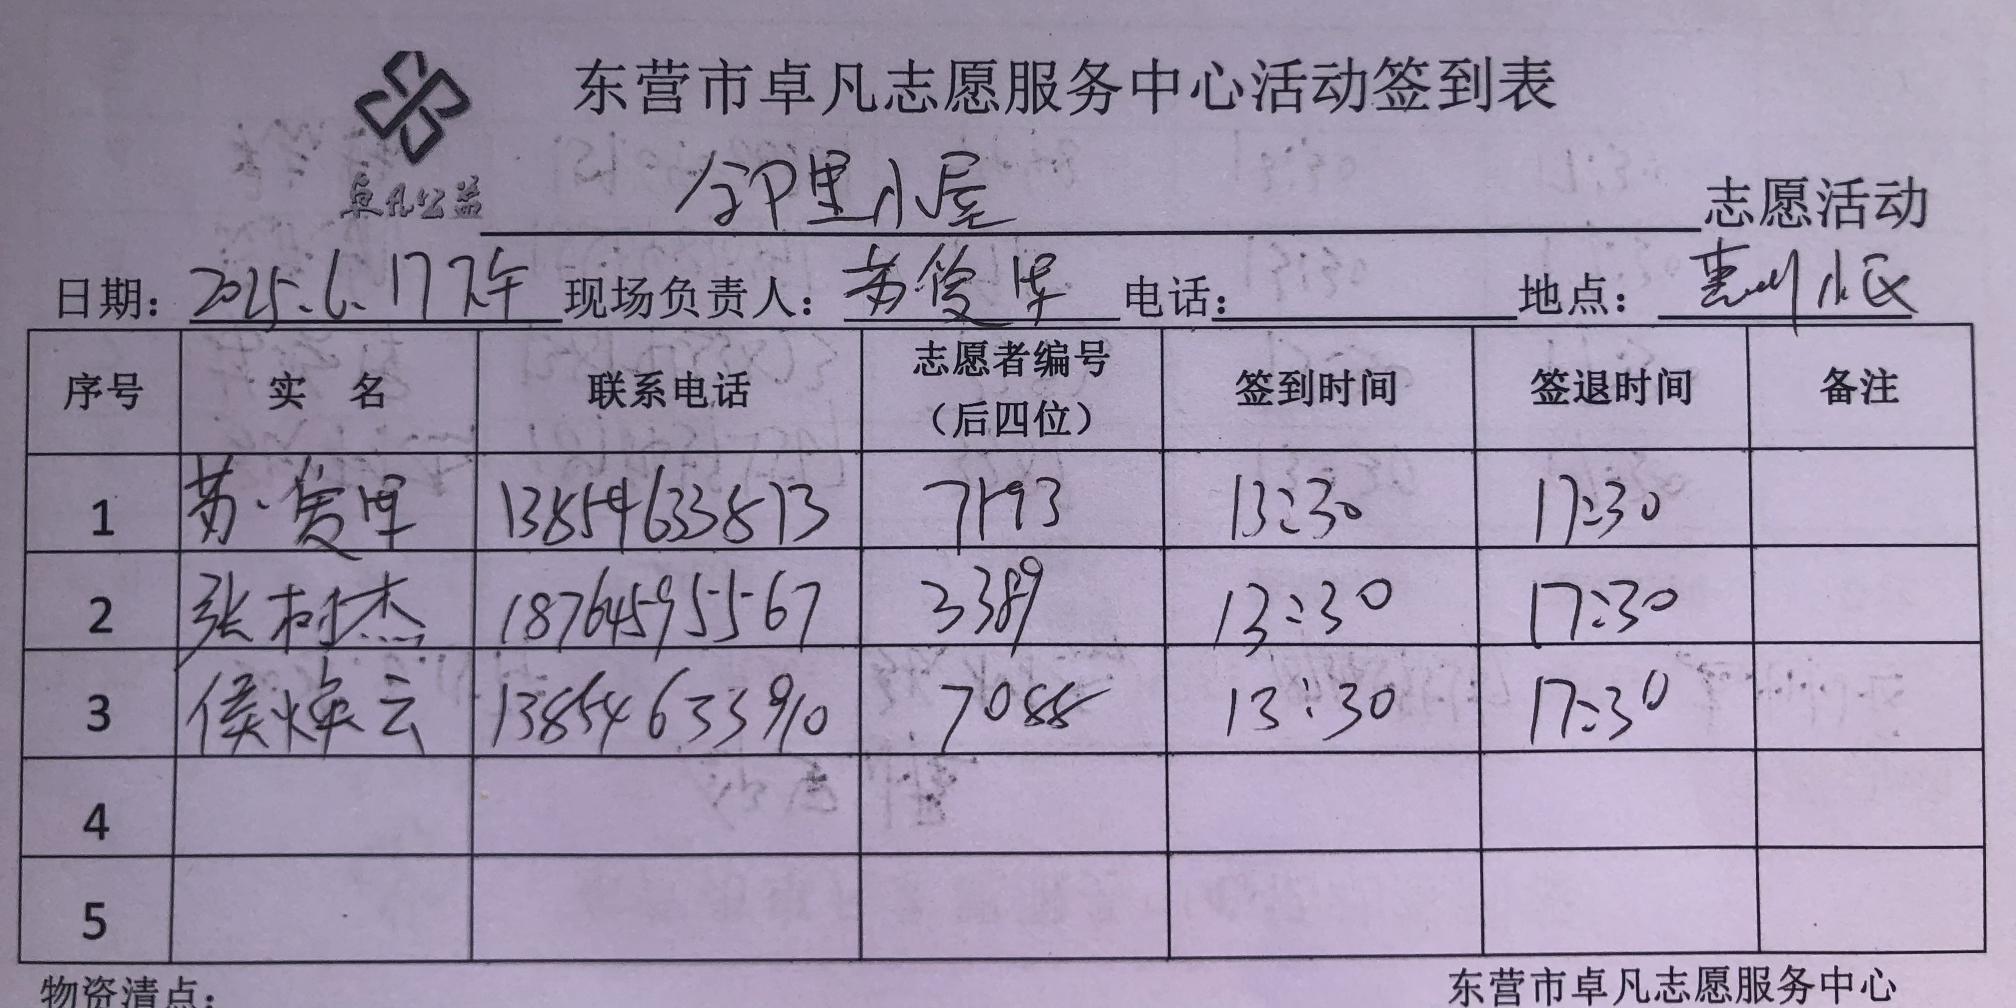 东营市卓凡志愿服务中心活动签到表
卓凡公益
邻里小屋 志愿活动
日期: 2025.6.17下午 现场负责人: 苏爱军 电话: 地点: 惠州小区
序号 实 名 联系电话 志愿者编号（后四位） 签到时间 签退时间 备注
1 苏爱军 13854633873 7193 13:30 17:30
2 张树杰 18764595567 3389 13:30 17:30
3 侯焕云 13854633910 7088 13:30 17:30
4
5
物资清点:
东营市卓凡志愿服务中心